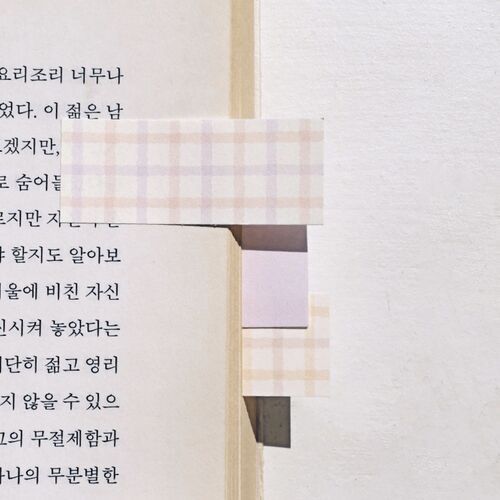 요리조리 너무나
었다. 이 젊은 남
겠지만,
로 숨어들
르지만
할지도 알아보
거울에 비친 자신
신시켜 놓았다는
대단히 젊고 영리
지 않을 수 있으
그의 무절제함과
하나의 무분별한